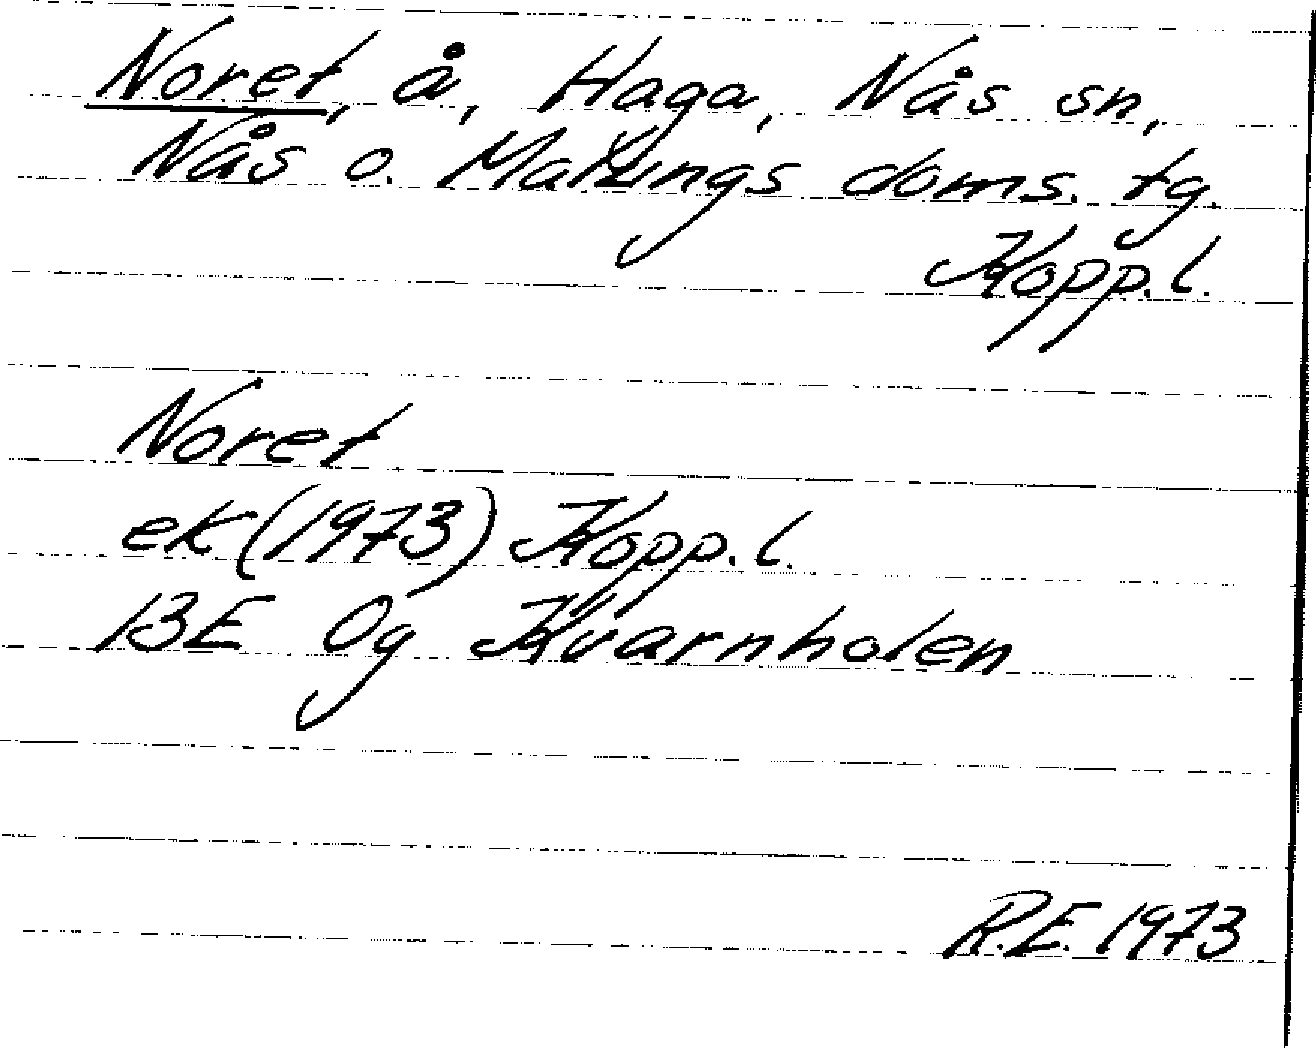 Noret, å, Haga, Nås sn,
Nås o. Malungs doms. tg.
Kopp.l.
Noret
ek (1973) Kopp.l.
13E 0g Kvarnholen
R.E. 1973